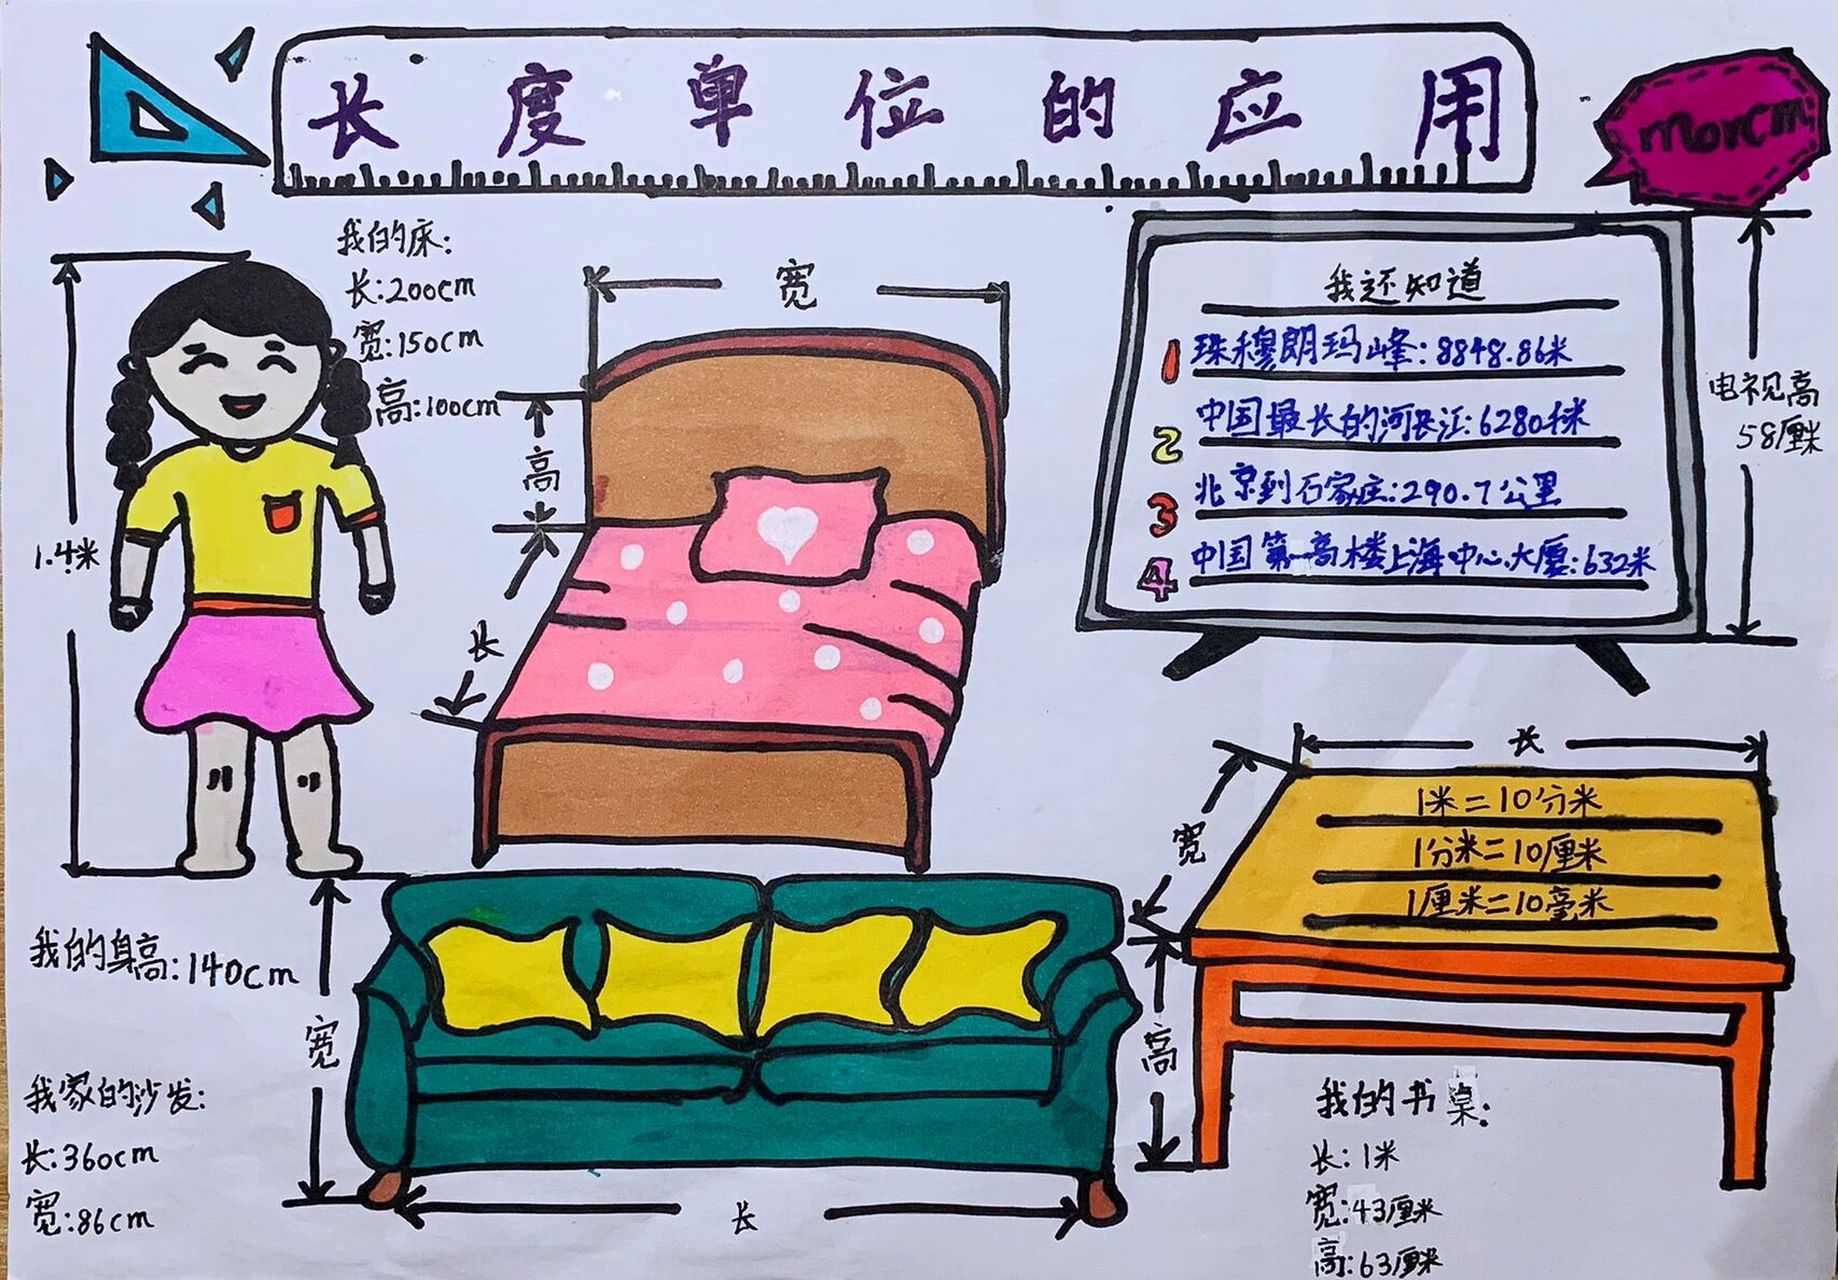 长度单位的应用
m or cm
我的床：
长：200cm
宽：150cm
高：100cm
宽
高
长
1.4米
我的身高：140cm
我还知道
1 珠穆朗玛峰：8848.86米
2 中国最长的河长江：6280千米
3 北京到石家庄：290.7公里
4 中国第一高楼上海中心大厦：632米
电视高
58厘米
长
宽
高
1米=10分米
1分米=10厘米
1厘米=10毫米
我家的沙发：
长：360cm
宽：86cm
宽
长
我的书桌：
长：1米
宽：43厘米
高：63厘米